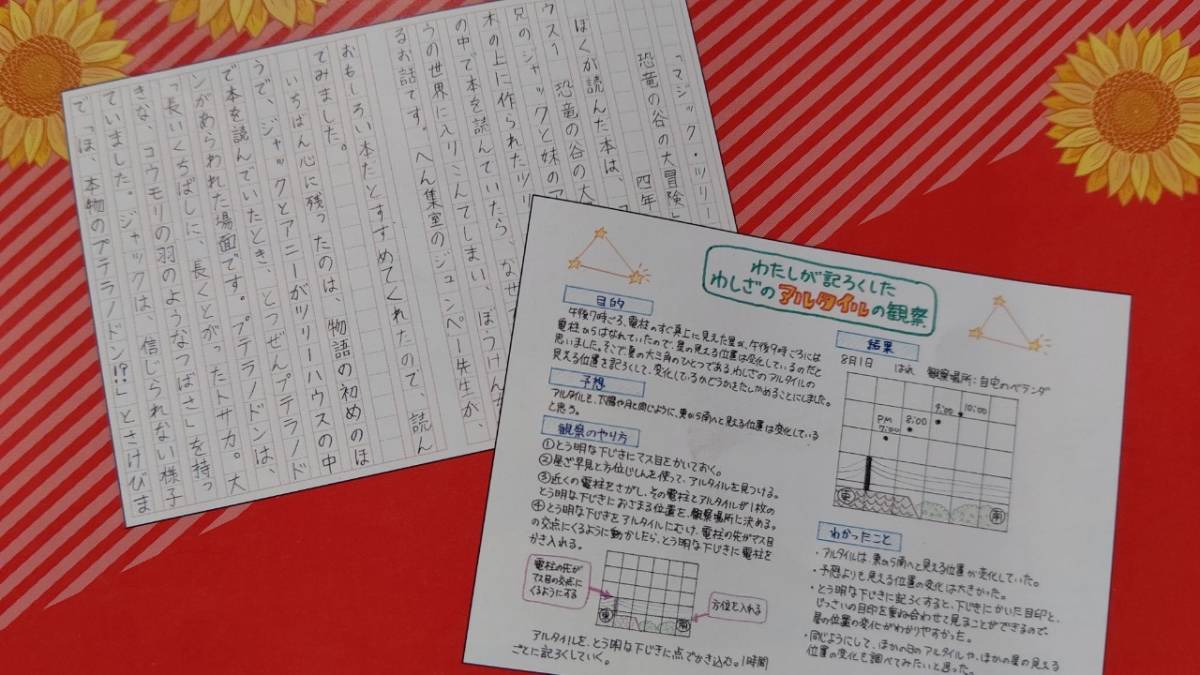 「マジック・ツリー
恐竜の谷の大冒険」
四年
ぼくが読んだ本は、「
ウス1　恐竜の谷の大
兄のジャックと妹のア
木の上に作られたツリ
の中で本を読んでいたら、なぜ
うの世界に入りこんでしまい、ぼうけんを
るお話です。へん集室のジュンペー先生が、
おもしろい本だとすすめてくれたので、読ん
でみました。
いちばん心に残ったのは、物語の初めのほ
うで、ジャックとアニーがツリーハウスの中
で本を読んでいたとき、とつぜんプテラノド
ンがあらわれた場面です。プテラノドンは、
「長いくちばしに、長くとがったトサカ。大
きな、コウモリの羽のようなつばさ」を持っ
ていました。ジャックは、信じられない様子
で「ほ、本物のプテラノドン!?」とさけびま
わたしが記ろくした
わしざのアルタイルの観察
目的
午後7時ごろ、電柱のすぐ真上に見えた星が、午後9時ごろには
電柱からはなれていたので、星の見える位置は変化しているのだと
思いました。そこで、夏の大三角のひとつである、わしざのアルタイルの
見える位置を記ろくして、変化しているかどうかをたしかめることにしました。
予想
アルタイルも、太陽や月と同じように、東から南へと見える位置は変化している
と思う。
観察のやり方
①とう明な下じきにマス目をかいておく。
②星ざ早見と方位じしんを使って、アルタイルを見つける。
③近くの電柱をさがし、その電柱とアルタイルが1枚の
とう明な下じきにおさまる位置を、観察場所に決める。
④とう明な下じきをアルタイルにむけ、電柱の先がマス目
の交点にくるように動かしたら、とう明な下じきに電柱を
かき入れる。
電柱の先が
マス目の交点に
くるようにする
東
南
方位を入れる
アルタイルを、とう明な下じきに点でかき込む。1時間
ごとに記ろくしていく。
結果
8月1日　はれ　観察場所：自宅のベランダ
PM
7:00
8:00
9:00
10:00
東
南
わかったこと
・アルタイルは、東から南へと見える位置が変化していた。
・予想よりも見える位置の変化は大きかった。
・とう明な下じきに記ろくすると、下じきにかいた目印と、
じっさいの目印を重ね合わせて見ることができるので、
星の位置の変化がわかりやすかった。
・同じようにして、ほかの日のアルタイルや、ほかの星の見える
位置の変化も調べてみたいと思った。